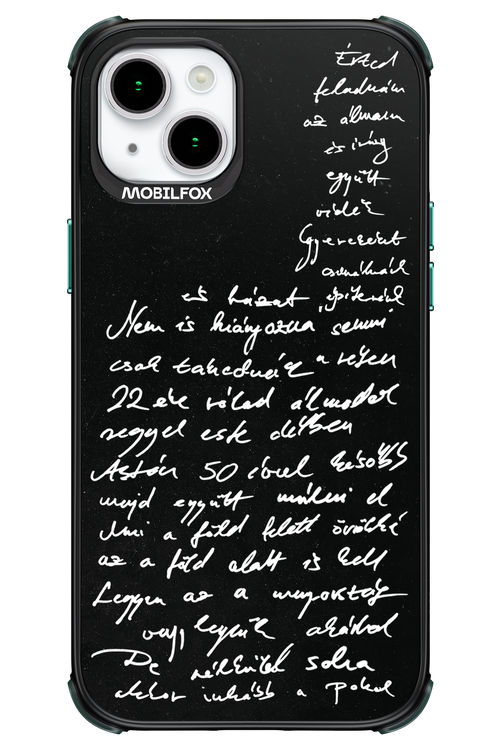 MOBILFOX
Érted
feladnám
az álmaim
és irány
együtt
vidék
Gyerekeket
csinálnánk
és házat építenénk
Nem is hiányozna semmi
csak tehetnénk a rétjen
22 éve rólad álmodok
reggel este délben
Aztán 50 évvel később
majd együtt múlni el
Ami a föld felett örökké
az a föld alatt is kell
Legyen az a mennyország
vagy legyünk akárhol
De nélküled soha
akkor inkább a pokol